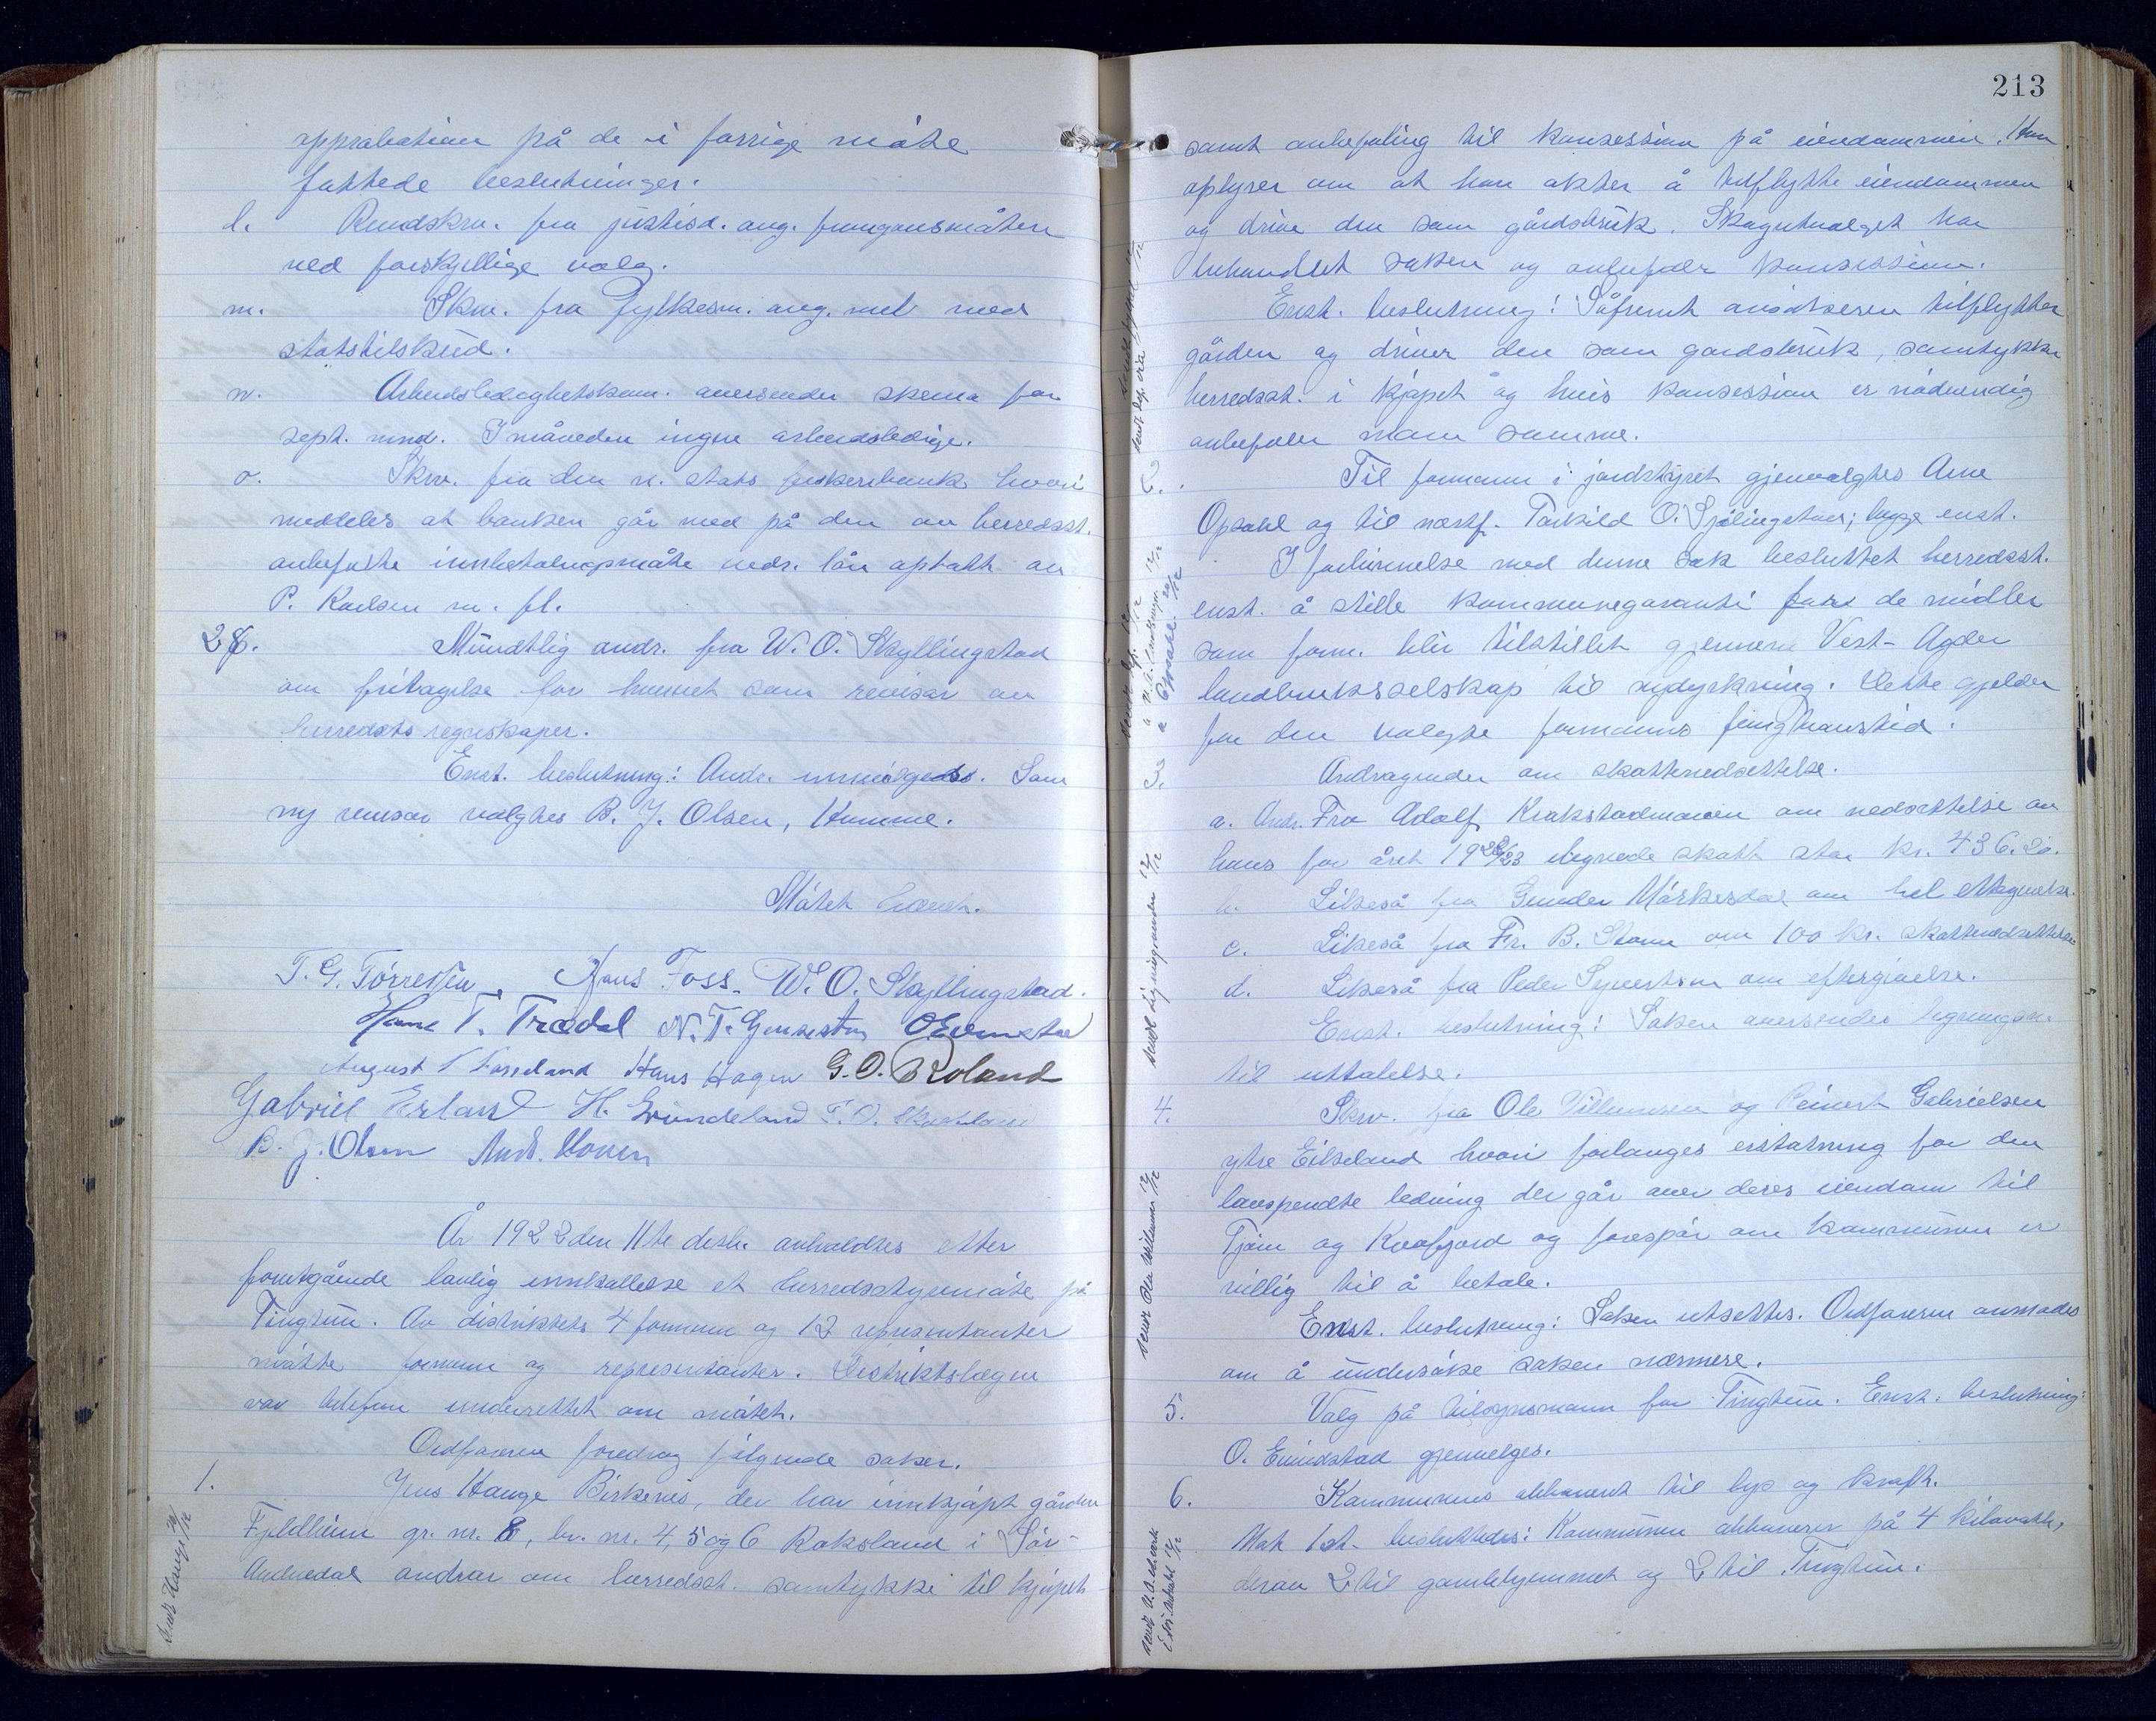 approbation på de i forrige møte
fattede beslutninger.
l. Rundskrv. fra justisd. ang. fremgansmåten
ved forskjellige valg.
m. Skrv. fra fylkesm. ang. med
statstilskud.
n. Arbeidsledighetskom. oversender skema for
sept. mnd. I måneden ingen arbeidsledige.
o. Skrv. fra den n. stats fiskeribank hvori
meddeles at banken går med på den av herredsst.
anbefalte innbetalingsmåte vedr. lån optatt av
P. Karlsen m. fl.
28. Mundtlig andr. fra W. O. Skyllingstad
om fritagelse for hvervet som revisor av
herredets regnskaper.
Enst. beslutning: Andr. innvilgedes. Som
ny revisor valgtes B. J. Olsen, Homme.
Møtet hævet.
T. G. Tørressen Hans Foss. W. O. Skyllingstad.
Hans T. Trædal N. T.
August Hans Hagen G. O. Roland
Gabriel H. T. O.
B. J. Olsen And. Hoven
År 1922 den 11te desbr. avholdtes etter
foregående lovlig innkallelse et herredsstyremøte på
Tingtun. Av distriktets 4 formenn og 12 representanter
møtte formenn og representanter. Distriktslægen
var telefon. underrettet om møtet.
Ordføreren foredrog følgende saker.
1. Jens Hauge Birkenes, der har innkjøpt gården
Fjeldheim gr. nr. 8, br. nr. 4, 5 og 6 Roksland i Sør-
Audnedal andrar om herredsst. samtykke til kjøpet
Sent Hauge 20/12
213
samt anbefaling til konsession på eiendommen. Han
oplyser om at han akter å tilflytte eiendommen
og drive den som gårdsbruk. Skogutvalget har
behandlet saken og anbefaler konsession.
Enst. beslutning: Såfremt ansøkeren tilflytter
gården og driver den som gardsbruk, samtykker
herredsst. i kjøpet og hvis konsession er nødvendig
anbefaler man samme.
2. Til formann i jordstyret gjenvalgtes Arne
Opsahl og til næstf. Torkild O. begge enst.
I forbinnelse med denne sak besluttet herredsst.
enst. å stille kommunegaranti for de midler
som form. blir tilstillet gjennem Vest-Agder
landbruksselskap til nydyrkning. Dette gjelder
for den valgte formanns funktionstid.
3. Andragender om skattenedsettelse.
a. Andr. Fra Adolf Krakstadmoen om nedsettelse av
hans for året 1922/23 ilignede skatt stor kr. 436.20.
b. Likeså fra Gunder Mørkesdal om hel ettergivelse.
c. Likeså fra Fr. B. Stam om 100 kr. skattenedsettelse
d. Likeså fra Peder Syvertsen om eftergivelse.
Enst. beslutning: Saken oversendes lignings.
til uttalelse.
4. Skrv. fra Ole Villumsen og Reinert Gabrielsen
ytre Eikeland hvori forlanges erstatning for den
lavspendte ledning der går over deres eiendom til
Tjøm og Kvafjord og forespør om kommunen er
villig til å betale.
Enst. beslutning: Saken utsettes. Ordføreren anmodes
om å undersøke saken nærmere.
5. Valg på tilsynsmann for Tingtun. Enst. beslutning:
O. Evindstad gjenvelges.
6. Kommunens abbonent til lys og kraft.
Mot 1 st. besluttedes: Kommunen abbonerer på 4 kilovatt,
derav 2 til gamlehjemmet og 2 til Tingtun.
Opsahl 20/12
sendt ligningsvesenet 12/12
sendt Ole Villumsen 12/12